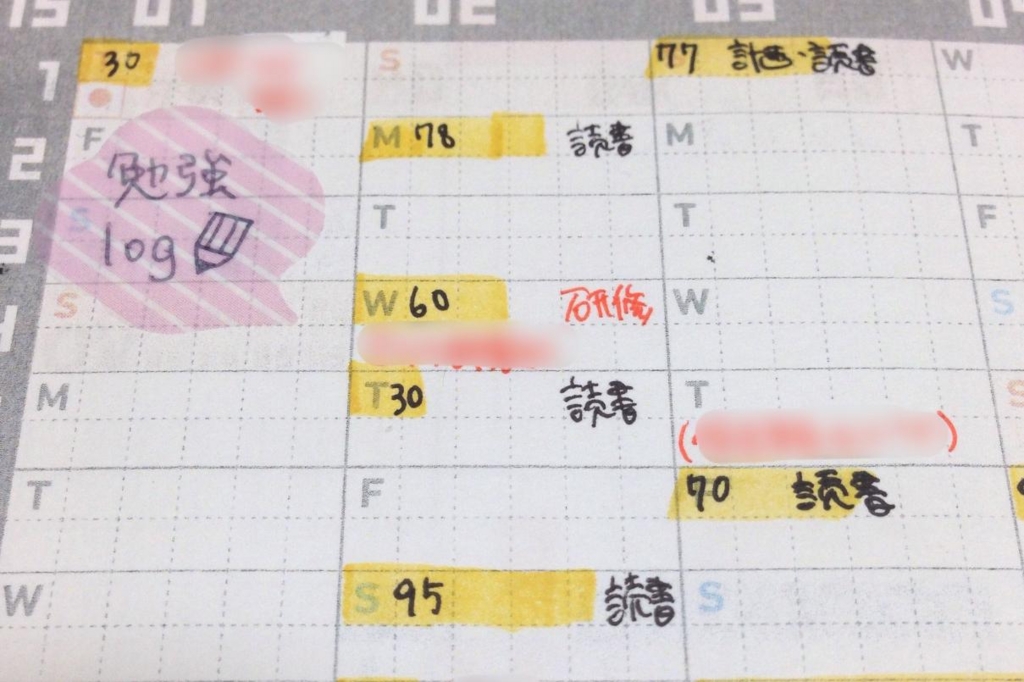 15 01 02 03 04
1 30 S 77 計画・読書 W
2 F 勉強 M 78 読書 M T
3 S log T T F
4 S W 60 研修 W S
M T 30 読書 T S
( )
T F 70 読書
W S 95 読書 S